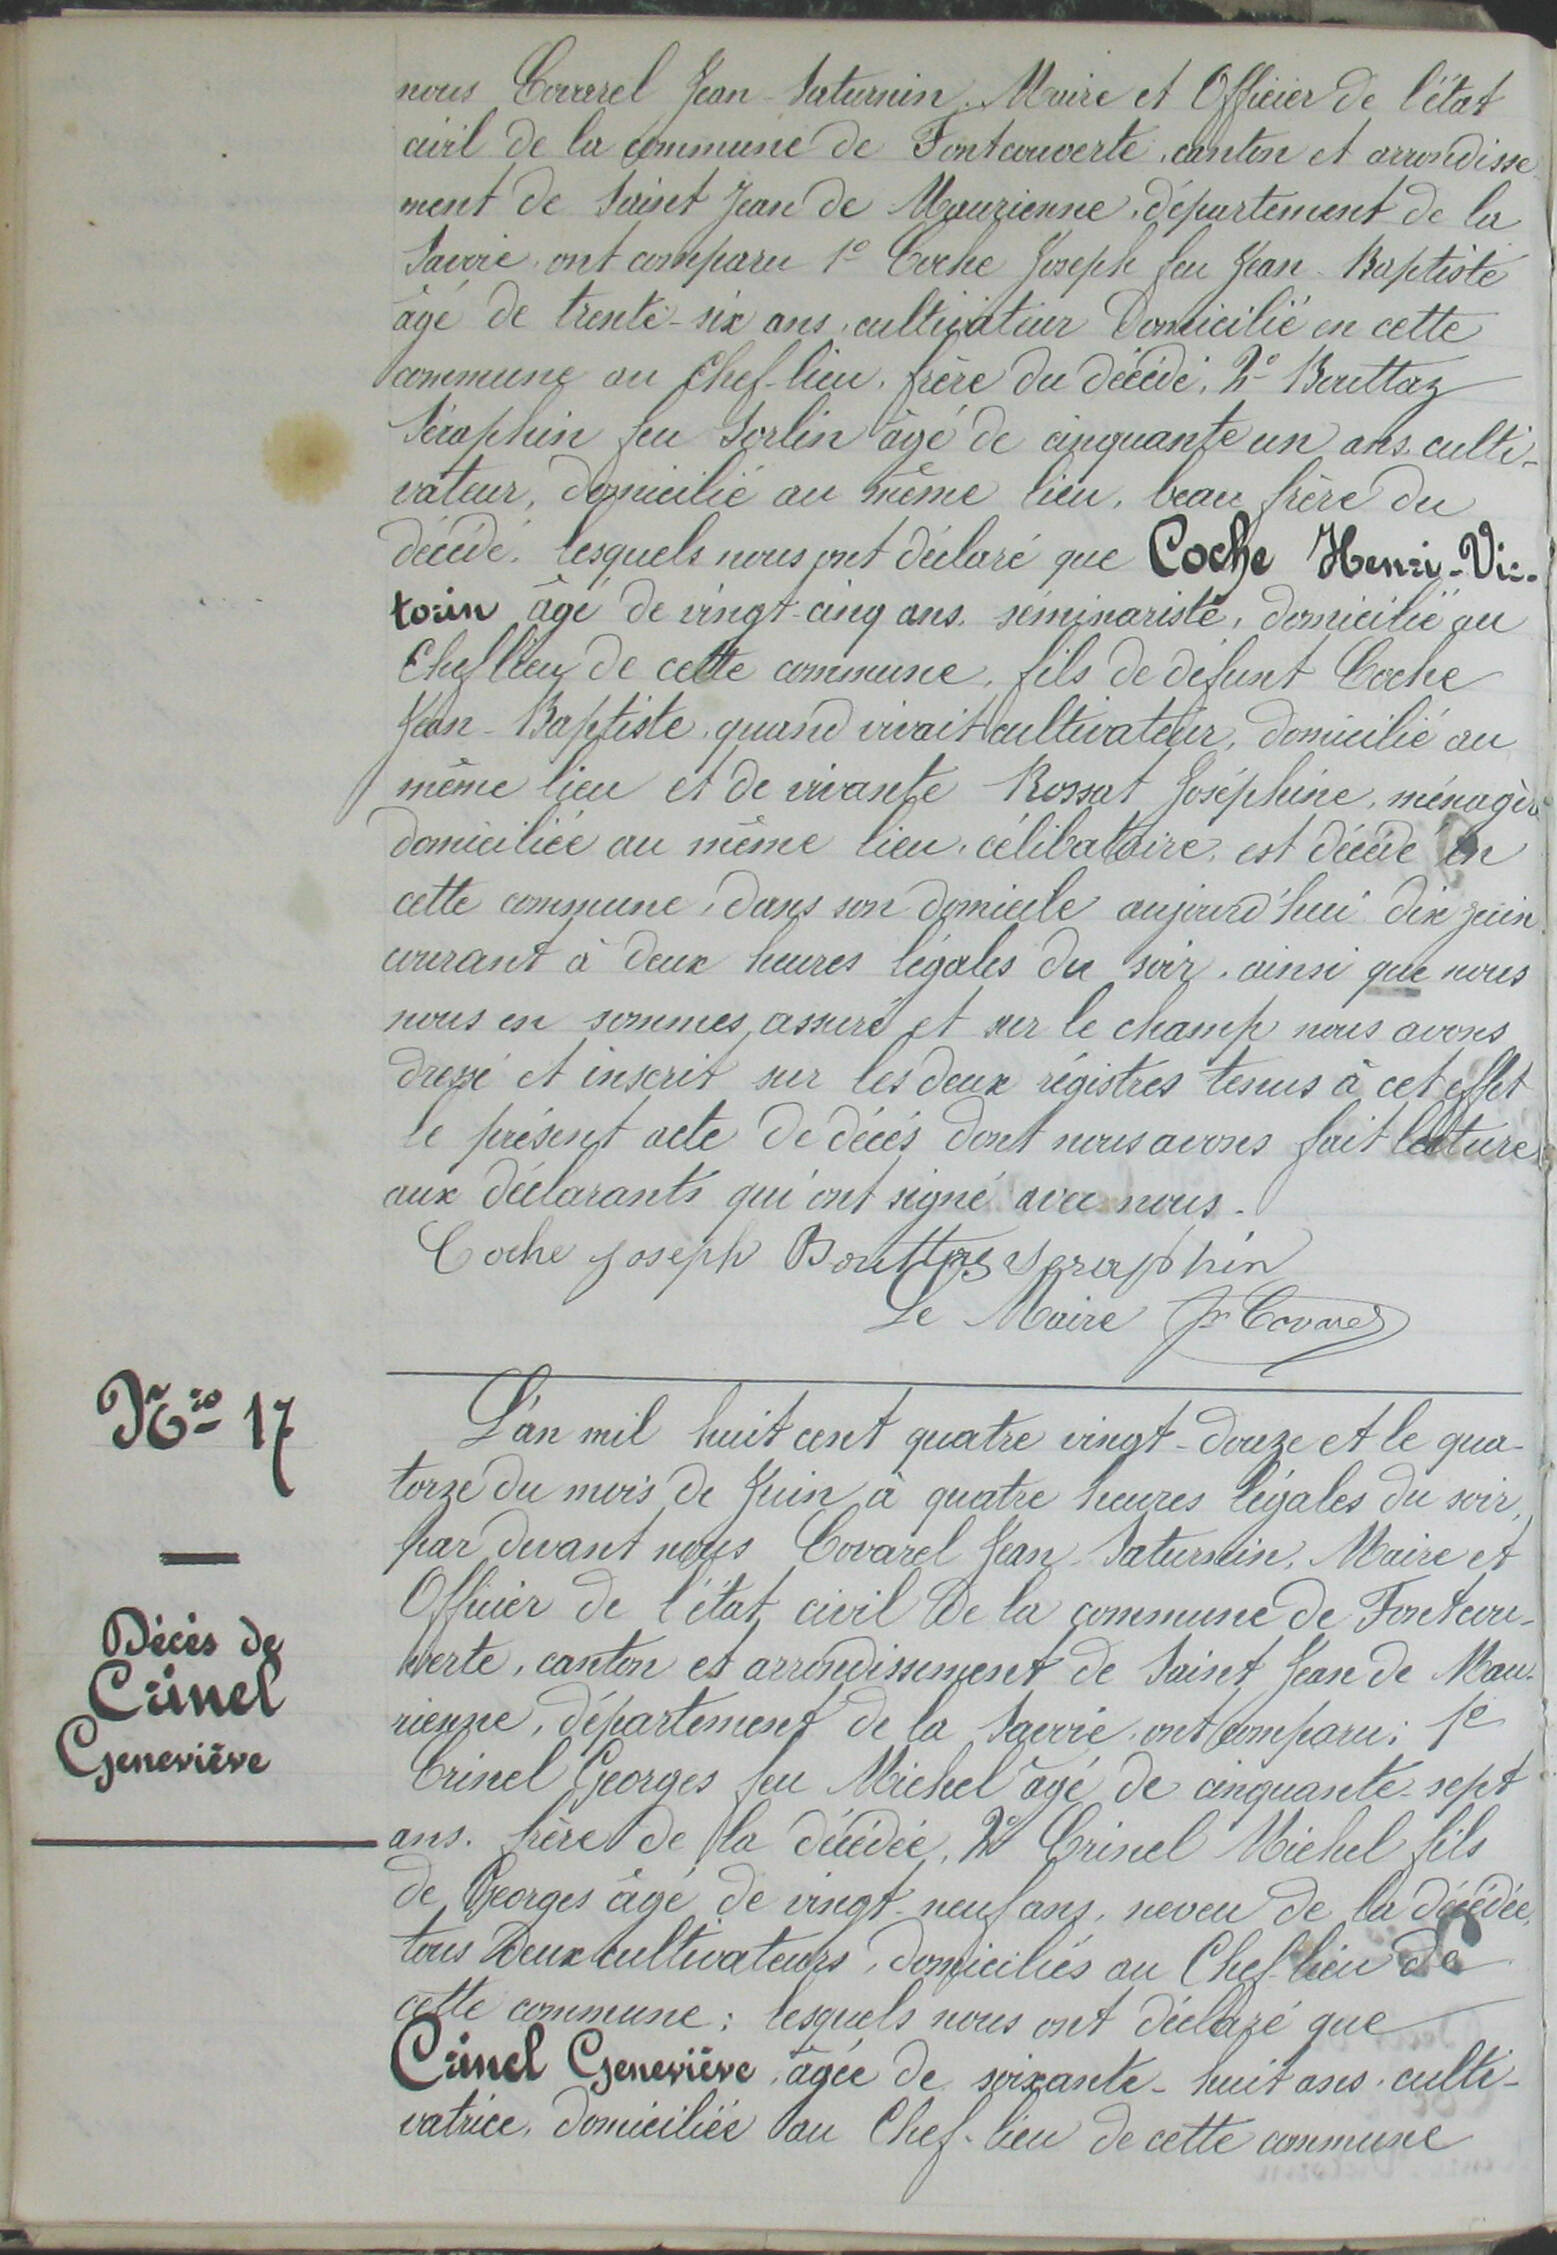 nous Covarel Jean-Saturnin. Maire et Officier de l'état
civil de la commune de Fontcouverte, canton et arrondisse
ment de Saint Jean de Maurienne, département de la
Savoie, ont comparu 1° Coche Joseph feu Jean-Baptiste
âgé de trente-six ans, cultivateur domicilié en cette
commune au Chef-lieu, frère du décédé, 2° Bouttaz
Séraphin feu Sorlin âgé de cinquante un ans, culti-
vateur, domicilié au même lieu, beau frère du
décédé, lesquels nous ont déclaré que Coche Henri-Vic-
torin âgé de vingt-cinq ans, séminariste, domicilié au
Chef lieu de cette commune, fils de défunt Coche
Jean-Baptiste, quand vivait cultivateur, domicilié au
même lieu et de vivante Rossat Joséphine, ménagère
domiciliée au même lieu, célibataire, est décédé en
cette commune, dans son domicile aujourd'hui dix juin
courant à deux heures légales du soir, ainsi que nous
nous en sommes assuré et sur le champ nous avons
dressé et inscrit sur les deux régistres tenus à cet effet
le présent acte de décès dont nous avons fait lecture
aux déclarants qui ont signé avec nous.
Coche Joseph Bouttaz Seraphin
Le Maire Jn Covarel
Nro 17
Décès de
Crinel
Geneviève
L'an mil huit cent quatre vingt-douze et le qua-
torze du mois de Juin à quatre heures légales du soir,
par devant nous Covarel Jean-Saturnin, Maire et
Officier de l'état civil de la commune de Fontcou-
verte, canton et arrondissement de Saint Jean de Mau-
rienne, département de la Savoie, ont comparu: 1e
Crinel Georges feu Michel âgé de cinquante-sept
ans, frère de la décédée, 2° Crinel Michel fils
de Georges âgé de vingt-neuf ans, neveu de la décédée,
tous deux cultivateurs, domiciliés au Chef-lieu de
cette commune; lesquels nous ont déclaré que
Crinel Geneviève, âgée de soixante-huit ans, culti-
vatrice, domiciliée au Chef-lieu de cette commune